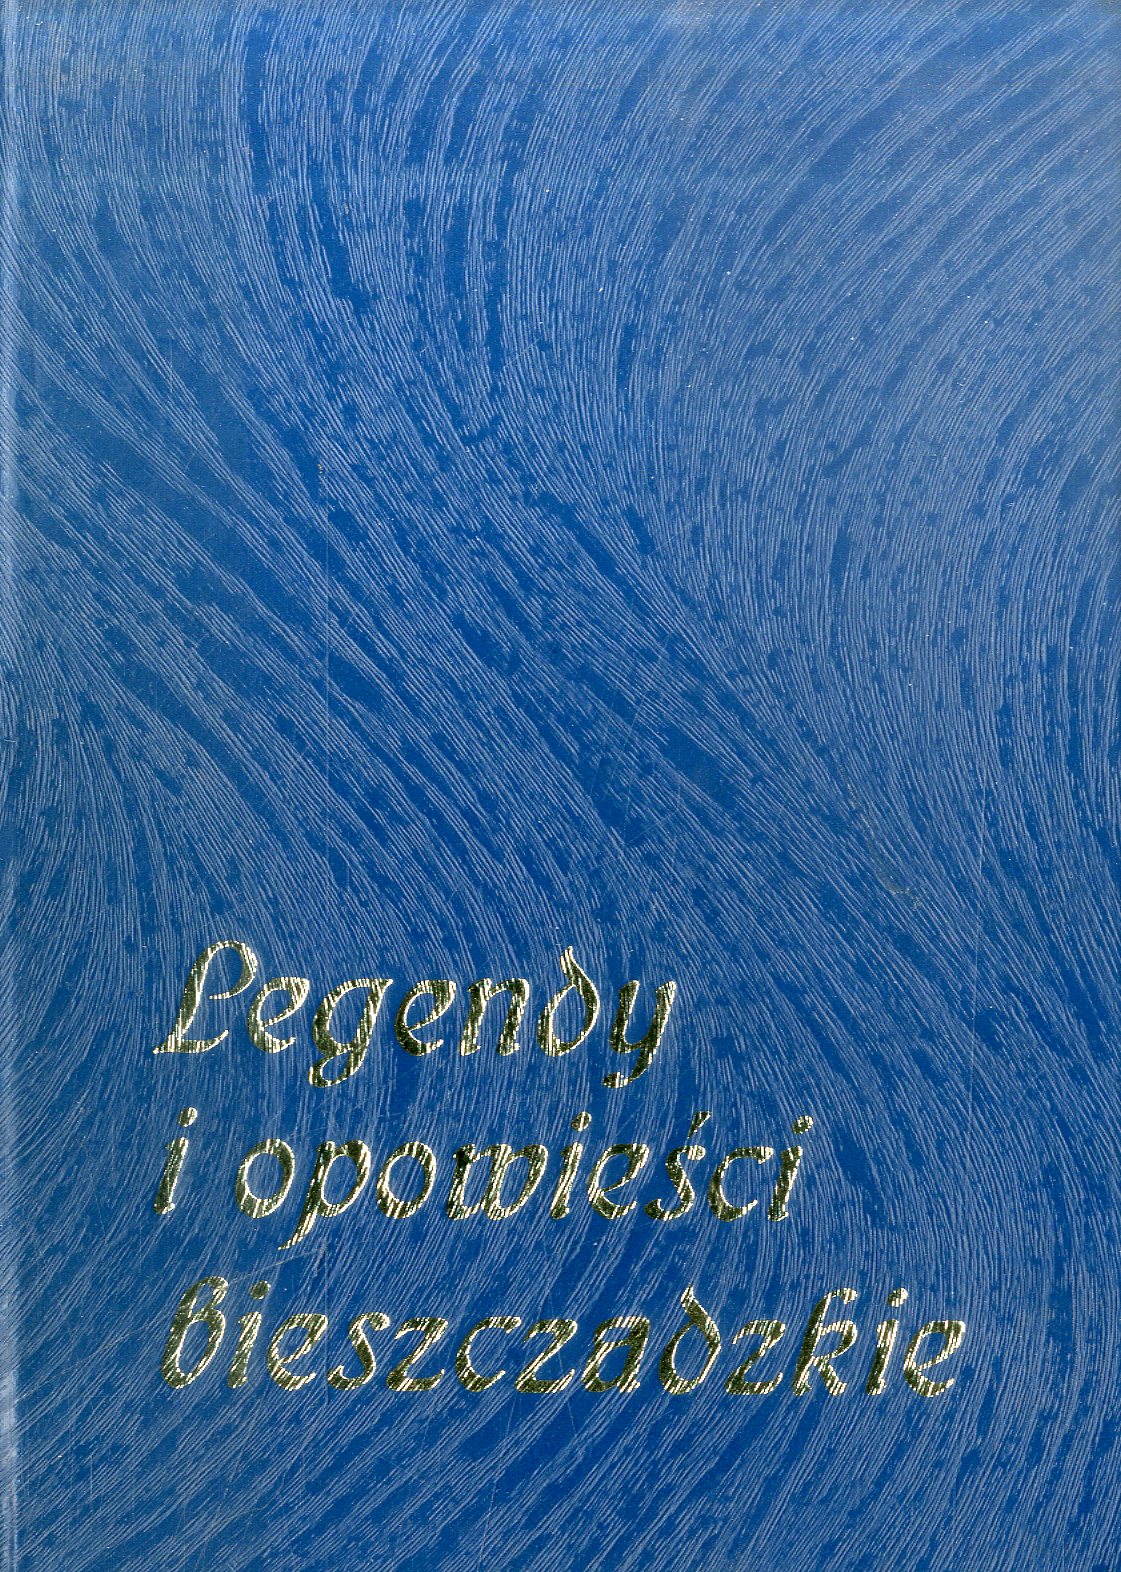 Legendy
i opowieści
Bieszczadzkie